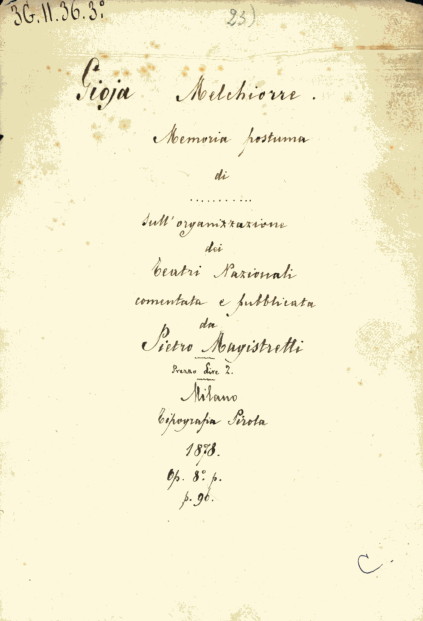 3G.11.36.3º
23)
Gioja Melchiorre.
Memoria postuma
di
...........
sull'organizzazione
dei
Teatri Nazionali
comentata e pubblicata
da
Pietro Magistretti
Prezzo Lire 2.
Milano
Tipografia Pirola
1878.
Op. 8º p.
p. 90.
C.